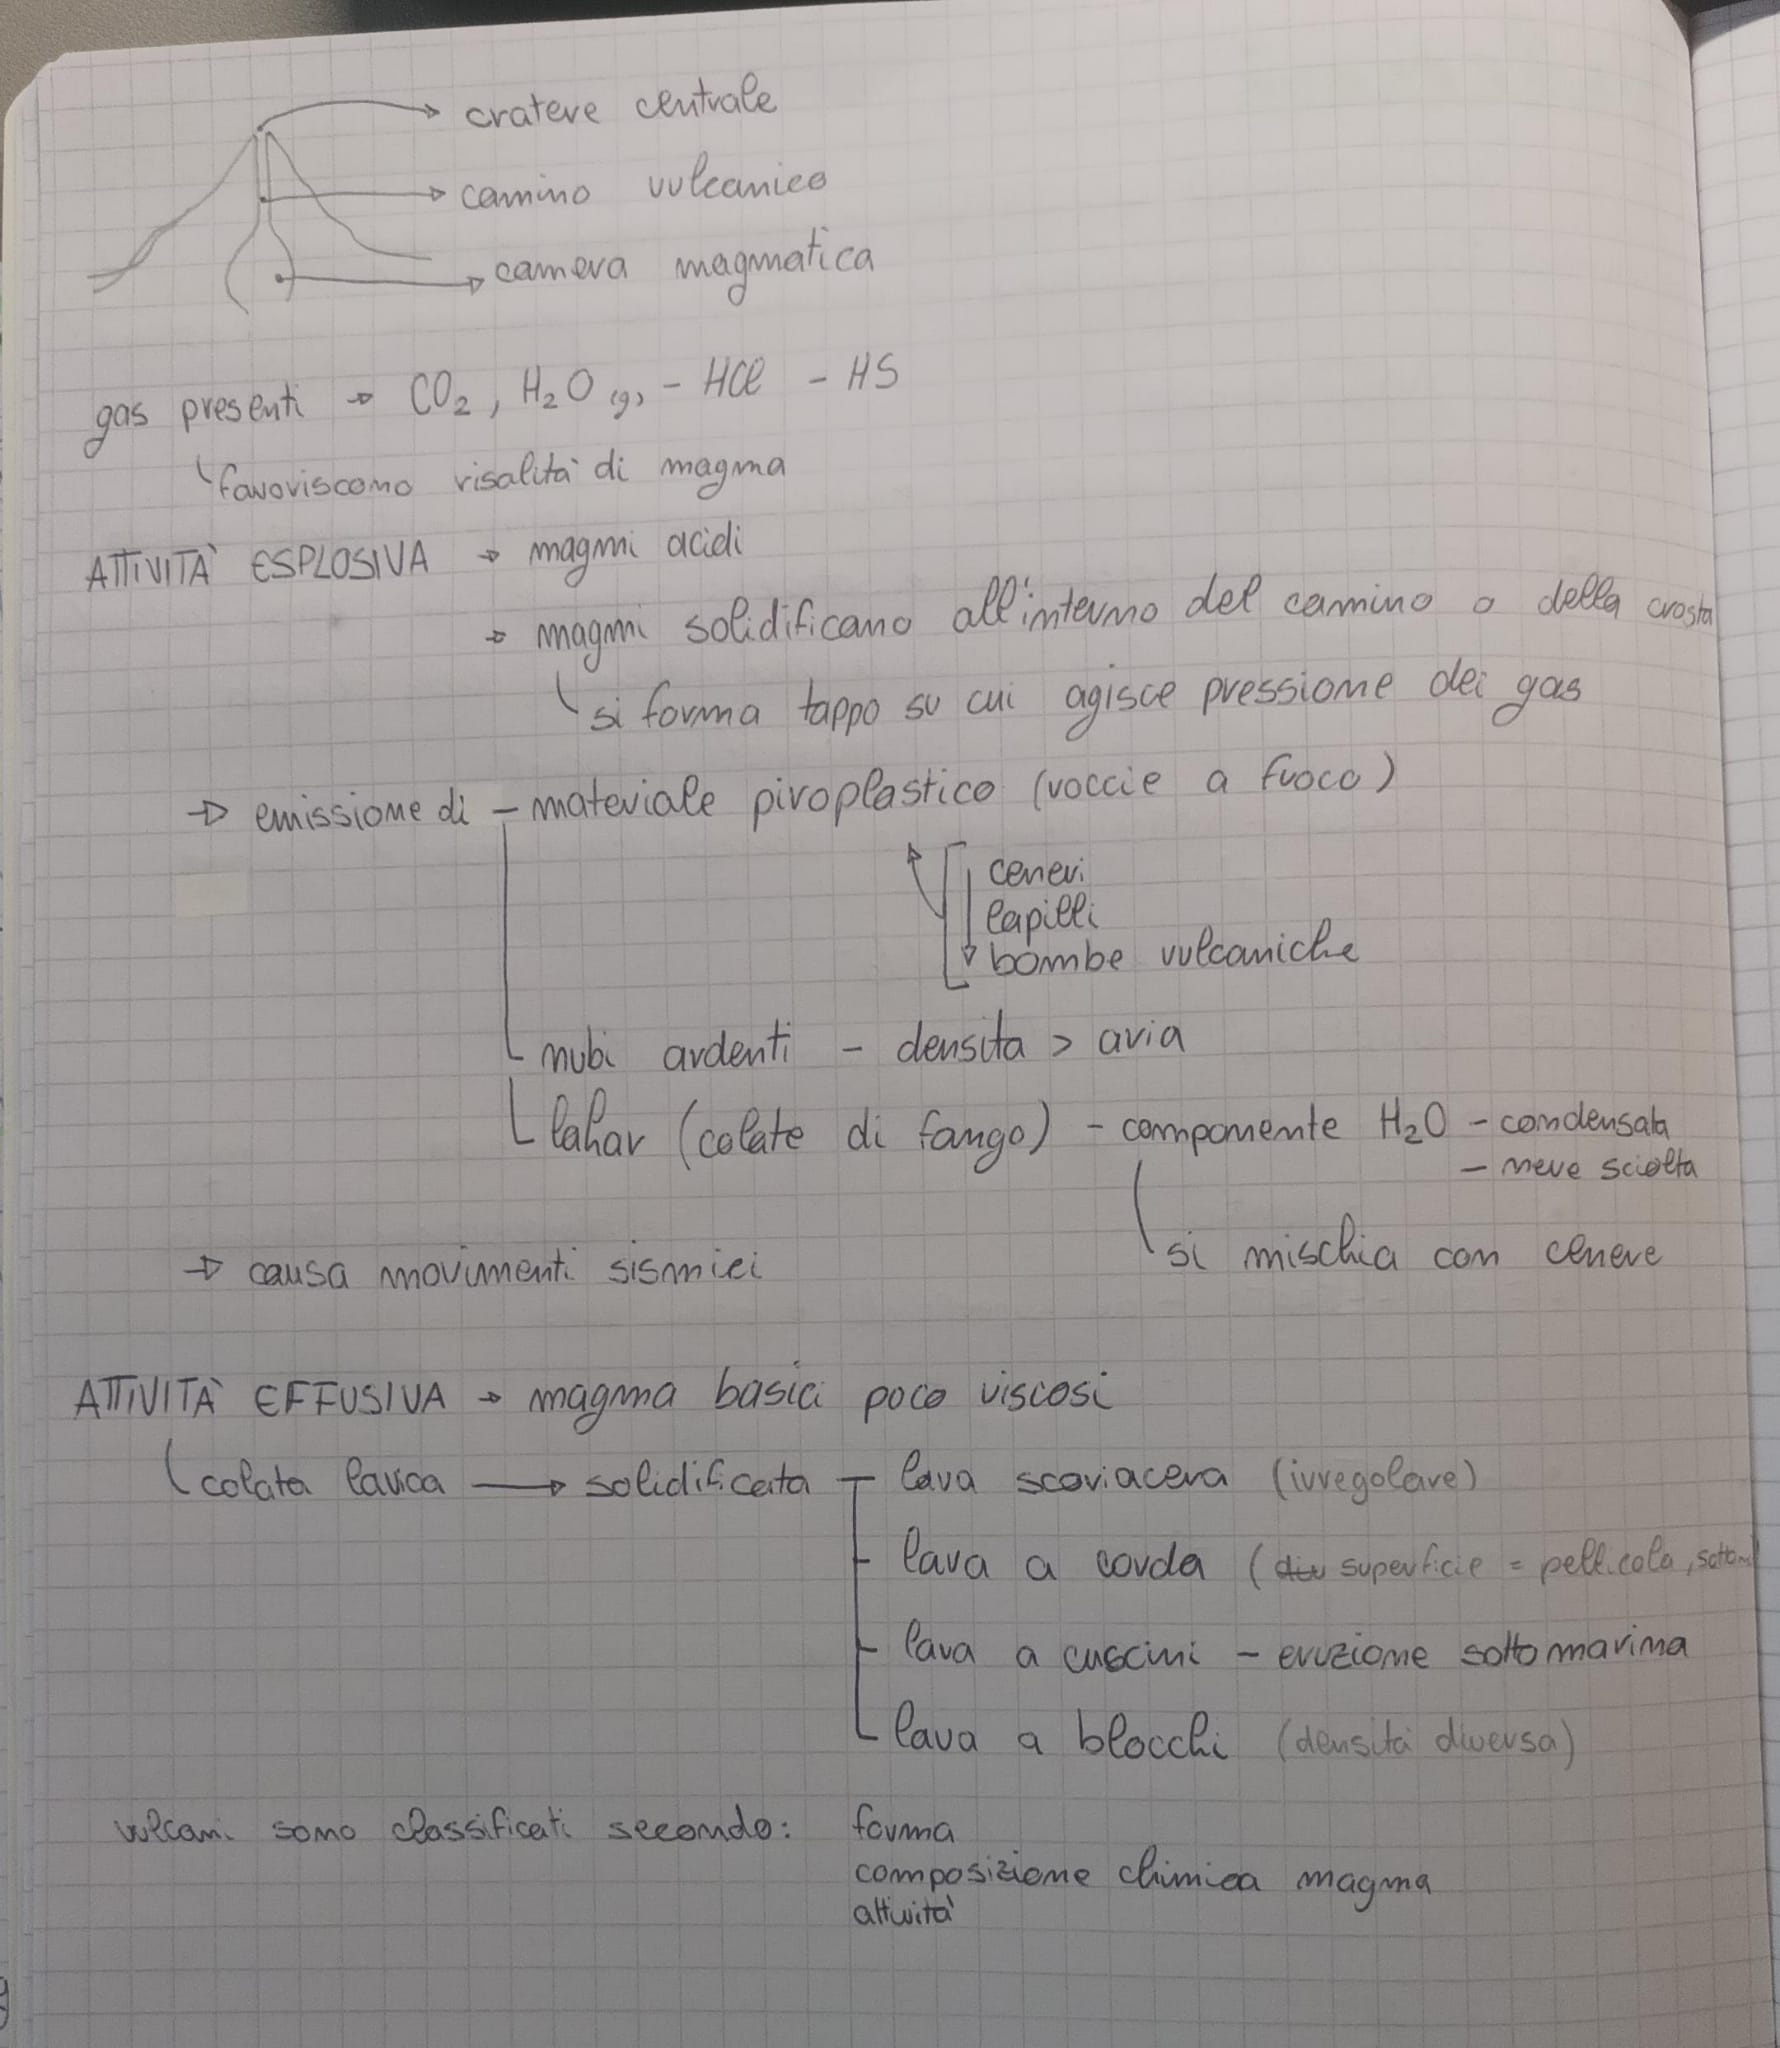 cratere centrale
camino vulcanico
camera magmatica
gas presenti → CO₂, H₂O (g), - HCl - HS
favoriscono risalità di magma
ATTIVITÀ ESPLOSIVA → magmi acidi
→ magmi solidificano all'interno del camino o della crosta
si forma tappo su cui agisce pressione dei gas
→ emissione di - materiale piroplastico (roccie a fuoco)
ceneri
lapilli
bombe vulcaniche
nubi ardenti - densita > aria
lahar (colate di fango) - componente H₂O - condensata
- neve sciolta
si mischia con cenere
→ causa movimenti sismici
ATTIVITÀ EFFUSIVA → magma basici poco viscosi
colata lavica → solidificata - lava scoriacera (irregolare)
- lava a corda ( superficie = pellicola,
- lava a cuscini - eruzione sottomarina
- lava a blocchi (densità diversa)
vulcani sono classificati secondo: forma
composizione chimica magma
attività